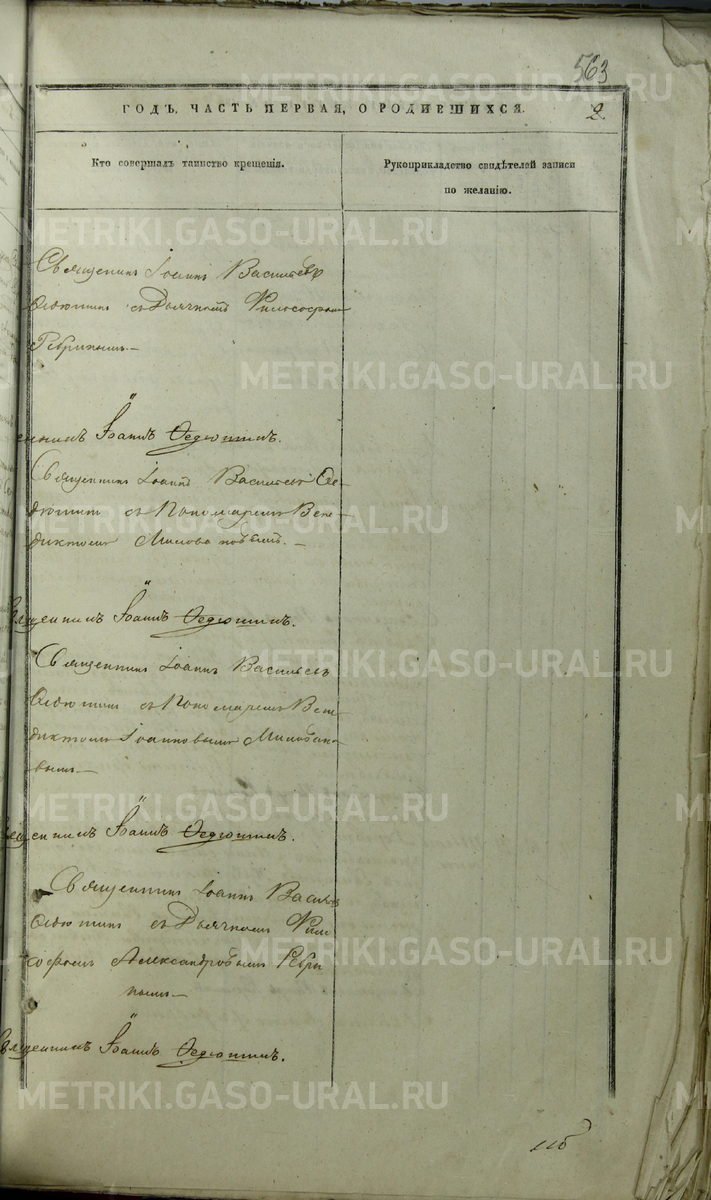 563
ГОДЪ, ЧАСТЬ ПЕРВАЯ, О РОДИВШИХСЯ.
2.
Кто совершалъ таинство крещенія.
Рукоприкладство свидѣтелей записи
по желанію.
Священникъ Іоаннъ Васильевъ
Ѳедютинъ съ Дьячкомъ Философомъ
Ребринымъ
Іоаннъ Ѳедютинъ.
Священникъ Іоаннъ Васильевъ Ѳе-
дютинъ съ Пономаремъ Вене-
диктомъ
Священникъ Іоаннъ Ѳедютинъ.
Священникъ Іоаннъ Васильевъ
Ѳедютинъ съ Пономаремъ Вене-
диктомъ Іоанновымъ
вымъ
Іоаннъ Ѳедютинъ.
Священникъ Іоаннъ Василь
Ѳедютинъ съ Дьячкомъ Фило
софомъ Александровымъ Ребри
нымъ
Священникъ Іоаннъ Ѳедютинъ.
METRIKI.GASO-URAL.RU